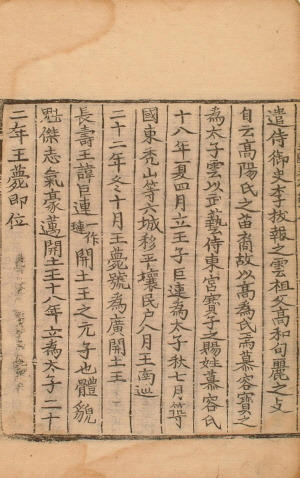 遣侍御史李拔報之雲祖父高和句麗之支
自云高陽氏之苗裔故以高為氏焉慕容寶之
為太子雲以武藝侍東宮寶子之賜姓慕容氏
十八年夏四月立王子巨連為太子秋七月築
國東禿山等六城移平壤民戶八月王南巡
二十二年冬十月王薨號為廣開土王
長壽王諱巨連一作璉開土王之元子也體貌
魁傑志氣豪邁開土王十八年立為太子二十
二年王薨即位